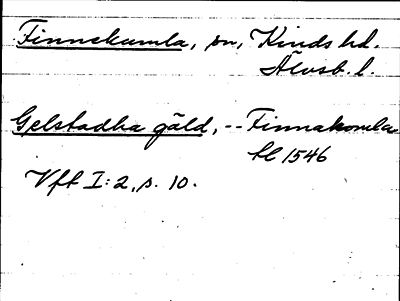 Finnekumla, sn, Kinds hd.
Älvsb. l.
Gelstadha gäld, -- Finnakomla
hl 1546
Vft I:2, s. 10.